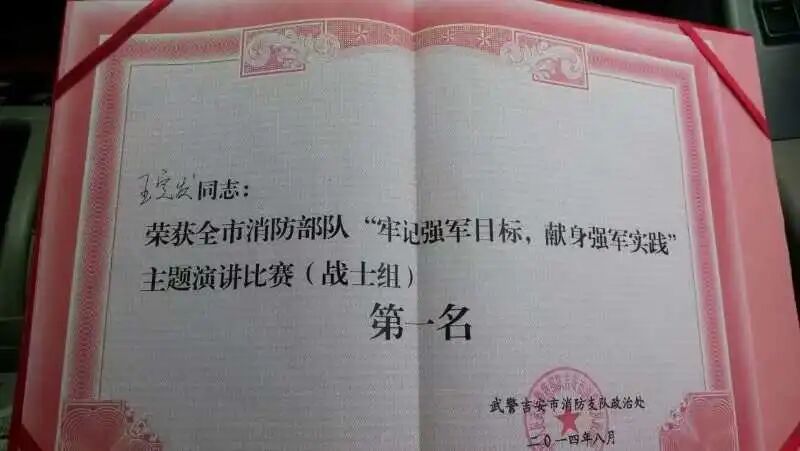 王定发同志：
荣获全市消防部队“牢记强军目标，献身强军实践”
主题演讲比赛（战士组）
第一名
武警吉安市消防支队政治处
二〇一四年八月